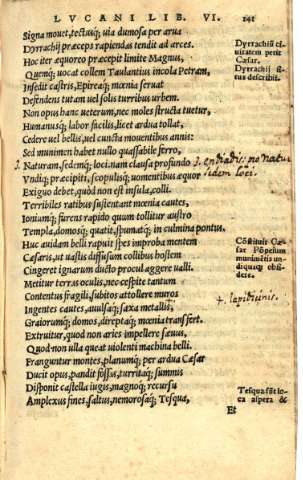 LVCANI LIB. VI. 141
Signa mouet, tectusq; uia dumosa per arua
Dyrrachij præceps rapiendas tendit ad arces.
Hoc iter æquoreo præcepit limite Magnus,
Quemq; uocat collem Taulantius incola Petram,
Insedit castris, Epireaq; mœnia seruat
Defendens tutam uel solis turribus urbem.
Non opus hanc ueterum, nec moles structa tuetur,
Humanusq; labor facilis, licet ardua tollat,
Cedere uel bellis, uel cuncta mouentibus annis:
Sed munimen habet nullo quassabile ferro,
Naturam, sedemq; loci. nam clausa profundo
Vndiq; præcipiti, scopulisq; uomentibus æquor
Exiguo debet, quòd non est insula, colli.
Terribiles ratibus sustentant mœnia cautes,
Ioniumq; furens rapido quum tollitur austro
Templa, domosq; quatit, spumatq; in culmina pontus.
Huc auidam belli rapuit spes improba mentem
Cæsaris, ut uastis diffusum collibus hostem
Cingeret ignarum ducto procul aggere ualli.
Metitur terras oculis, nec cespite tantum
Contentus fragili, subitos attollere muros
Ingentes cautes, auulsaq; saxa metallis,
Graiorumq; domos, direptaq; mœnia transfert.
Extruitur, quod non aries impellere sæuus,
Quod non ulla queat uiolenti machina belli.
Franguntur montes, planumq; per ardua Cæsar
Ducit opus, pandit fossas, turritaq; summis
Disponit castella iugis, magnoq; recursu
Amplexus fines, saltus, nemorosaq; Tesqua,
Et
Dyrrachiũ ci
uitatem petit
Cæsar.
Dyrrachij si
tus describit.
pro natu
idem loci.
Cõstituit Cæ
sar Põpeium
munimẽtis un
diquaq; obsi
dere.
+ lapidicinis.
Tesqua sũt lo
ca aspera &